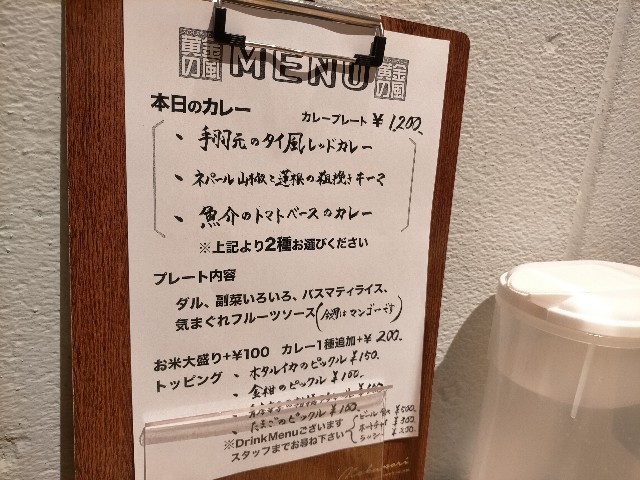 黄金の風 MENU 黄金の風
本日のカレー カレープレート ¥1,200.
、手羽元のタイ風レッドカレー
、ネパール山椒と蓮根の粗挽きキーマ
、魚介のトマトベースのカレー
※上記より2種お選びください
プレート内容
ダル、副菜いろいろ、バスマティライス、
気まぐれフルーツソース(今週はマンゴーです)
お米大盛り+¥100 カレー1種追加+¥200.
トッピング ・ホタルイカのピックル ¥150.
・金柑のピックル ¥100.
・たまごのピックル ¥100.
※DrinkMenuございます
スタッフまでお尋ね下さい
ビール ¥500
ホットチャイ ¥300
ラッシー ¥200.